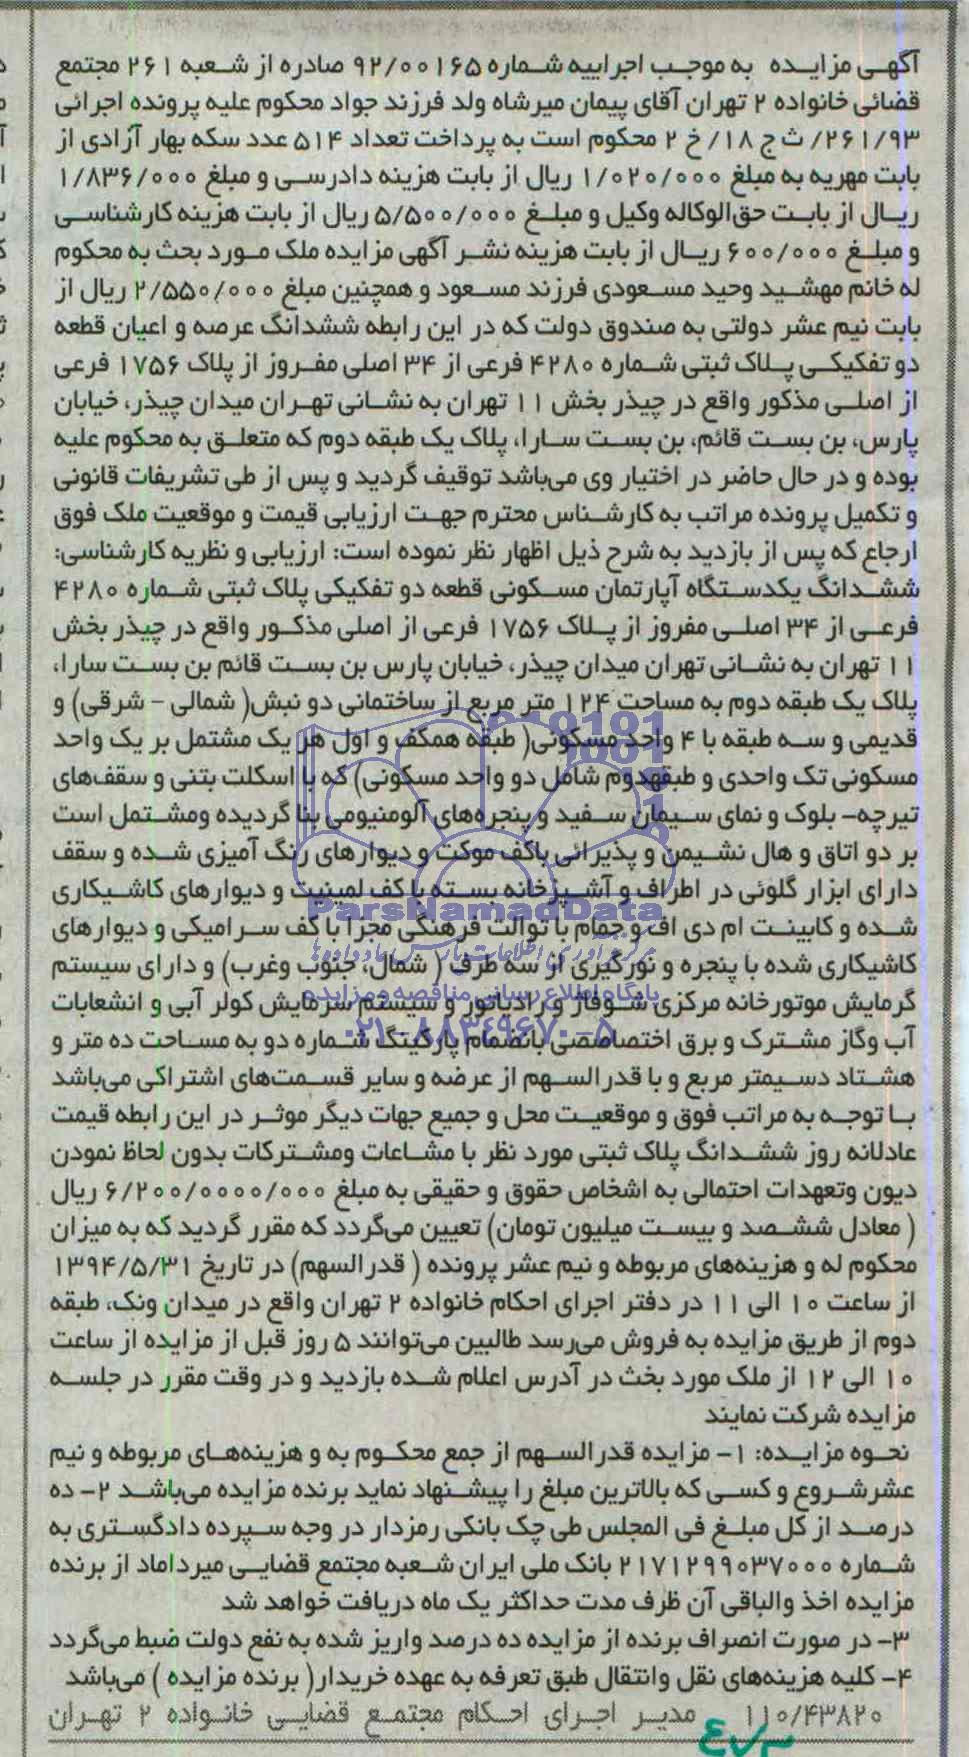 آگهی مزایده به موجب اجراییه شماره ۹۲/۰۰۱۶۵ صادره از شعبه ۲۶۱ مجتمع
قضائی خانواده ۲ تهران آقای پیمان میرشاه ولد فرزند جواد محکوم علیه پرونده اجرائی
۲۶۱/۹۳/ ث ج ۱۸/ خ ۲ محکوم است به پرداخت تعداد ۵۱۴ عدد سکه بهار آزادی از
بابت مهریه به مبلغ ۱/۰۲۰/۰۰۰ ریال از بابت هزینه دادرسی و مبلغ ۱/۸۳۶/۰۰۰
ریال از بابت حق‌الوکاله وکیل و مبلغ ۵/۵۰۰/۰۰۰ ریال از بابت هزینه کارشناسی
و مبلغ ۶۰۰/۰۰۰ ریال از بابت هزینه نشر آگهی مزایده ملک مورد بحث به محکوم
له خانم مهشید وحید مسعودی فرزند مسعود و همچنین مبلغ ۲/۵۵۰/۰۰۰ ریال از
بابت نیم عشر دولتی به صندوق دولت که در این رابطه ششدانگ عرصه و اعیان قطعه
دو تفکیکی پلاک ثبتی شماره ۴۲۸۰ فرعی از ۳۴ اصلی مفروز از پلاک ۱۷۵۶ فرعی
از اصلی مذکور واقع در چیذر بخش ۱۱ تهران به نشانی تهران میدان چیذر، خیابان
پارس، بن بست قائم، بن بست سارا، پلاک یک طبقه دوم که متعلق به محکوم علیه
بوده و در حال حاضر در اختیار وی می‌باشد توقیف گردید و پس از طی تشریفات قانونی
و تکمیل پرونده مراتب به کارشناس محترم جهت ارزیابی قیمت و موقعیت ملک فوق
ارجاع که پس از بازدید به شرح ذیل اظهار نظر نموده است: ارزیابی و نظریه کارشناسی:
ششدانگ یکدستگاه آپارتمان مسکونی قطعه دو تفکیکی پلاک ثبتی شماره ۴۲۸۰
فرعی از ۳۴ اصلی مفروز از پلاک ۱۷۵۶ فرعی از اصلی مذکور واقع در چیذر بخش
۱۱ تهران به نشانی تهران میدان چیذر، خیابان پارس بن بست قائم بن بست سارا،
پلاک یک طبقه دوم به مساحت ۱۲۴ متر مربع از ساختمانی دو نبش( شمالی - شرقی) و
قدیمی و سه طبقه با ۴ واحد مسکونی( طبقه همکف و اول هر یک مشتمل بر یک واحد
مسکونی تک واحدی و طبقهدوم شامل دو واحد مسکونی) که با اسکلت بتنی و سقف‌های
تیرچه- بلوک و نمای سیمان سفید و پنجره‌های آلومنیومی بنا گردیده ومشتمل است
بر دو اتاق و هال نشیمن و پذیرائی باکف موکت و دیوارهای رنگ آمیزی شده و سقف
دارای ابزار گلوئی در اطراف و آشپزخانه بسته با کف لمینیت و دیوارهای کاشیکاری
شده و کابینت ام دی اف و حمام با توالت فرهنگی مجزا با کف سرامیکی و دیوارهای
کاشیکاری شده با پنجره و نورگیری از سه طرف ( شمال، جنوب وغرب) و دارای سیستم
گرمایش موتورخانه مرکزی شوفاژ و رادیاتور و سیستم سرمایش کولر آبی و انشعابات
آب وگاز مشترک و برق اختصاصصی بانضمام پارکینگ شماره دو به مساحت ده متر و
هشتاد دسیمتر مربع و با قدر السهم از عرصه و سایر قسمت‌های اشتراکی می‌باشد
با توجه به مراتب فوق و موقعیت محل و جمیع جهات دیگر موثر در این رابطه قیمت
عادلانه روز ششدانگ پلاک ثبتی مورد نظر با مشاعات ومشترکات بدون لحاظ نمودن
دیون وتعهدات احتمالی به اشخاص حقوق و حقیقی به مبلغ ۶/۲۰۰/۰۰۰۰/۰۰۰ ریال
( معادل ششصد و بیست میلیون تومان) تعیین می‌گردد که مقرر گردید که به میزان
محکوم له و هزینه‌های مربوطه و نیم عشر پرونده ( قدرالسهم) در تاریخ ۱۳۹۴/۵/۳۱
از ساعت ۱۰ الی ۱۱ در دفتر اجرای احکام خانواده ۲ تهران واقع در میدان ونک، طبقه
دوم از طریق مزایده به فروش می‌رسد طالبین می‌توانند ۵ روز قبل از مزایده از ساعت
۱۰ الی ۱۲ از ملک مورد بحث در آدرس اعلام شده بازدید و در وقت مقرر در جلسه
مزایده شرکت نمایند
نحوه مزایده: ۱- مزایده قدرالسهم از جمع محکوم به و هزینه‌های مربوطه و نیم
عشرشروع و کسی که بالاترین مبلغ را پیشنهاد نماید برنده مزایده می‌باشد ۲- ده
درصد از کل مبلغ فی المجلس طی چک بانکی رمزدار در وجه سپرده دادگستری به
شماره ۲۱۷۱۲۹۹۰۳۷۰۰۰ بانک ملی ایران شعبه مجتمع قضایی میرداماد از برنده
مزایده اخذ والباقی آن ظرف مدت حداکثر یک ماه دریافت خواهد شد
۳- در صورت انصراف برنده از مزایده ده درصد واریز شده به نفع دولت ضبط می‌گردد
۴- کلیه هزینه‌های نقل وانتقال طبق تعرفه به عهده خریدار( برنده مزایده ) می‌باشد
۱۱۰/۴۳۸۲۰ مدیر اجرای احکام مجتمع قضایی خانواده ۲ تهران
ParsNamadData
پایگاه اطلاع رسانی مناقصه و مزایده
۰۲۱-۸۸۳۴۹۶۷۰-۵